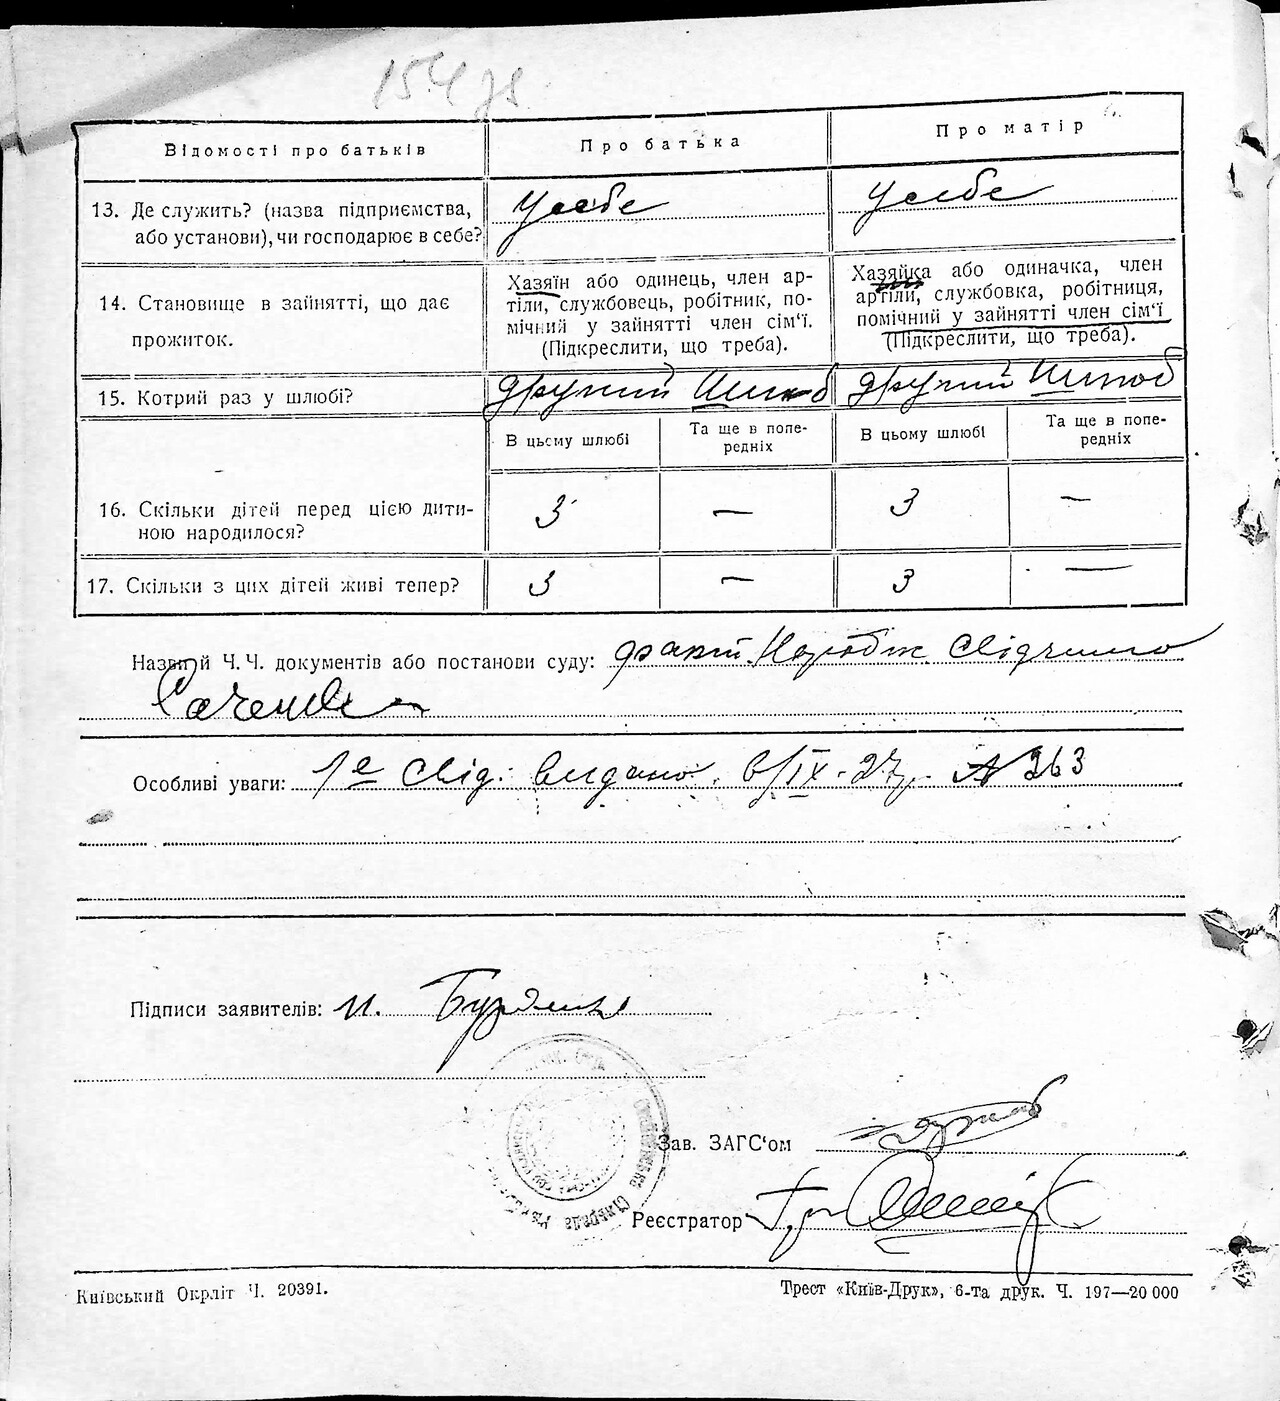 154 зв
Відомості про батьків
Про батька
Про матір
13. Де служить? (назва підприємства,
або установи), чи господарює в себе?
у себе
у себе
14. Становище в зайнятті, що дає
прожиток.
Хазяїн або одинець, член ар-
тіли, службовець, робітник, по-
мічний у зайнятті член сім'ї.
(Підкреслити, що треба).
Хазяйка або одиначка, член
артіли, службовка, робітниця,
помічний у зайнятті член сім'ї
(Підкреслити, що треба).
15. Котрий раз у шлюбі?
другий шлюб
другий шлюб
В цьому шлюбі
Та ще в попе-
редніх
В цьому шлюбі
Та ще в попе-
редніх
16. Скільки дітей перед цією дити-
ною народилося?
3
—
3
—
17. Скільки з цих дітей живі тепер?
3
—
3
—
Назвий Ч.Ч. документів або постанови суду: факт
Особливі уваги: 1е свід. видано 6/IX-27р. № 263
Підписи заявителів: И.
Зав. ЗАГС'ом
Реєстратор
Київський Окрліт Ч. 20391.
Трест «Київ-Друк», 6-та друк. Ч. 197—20 000